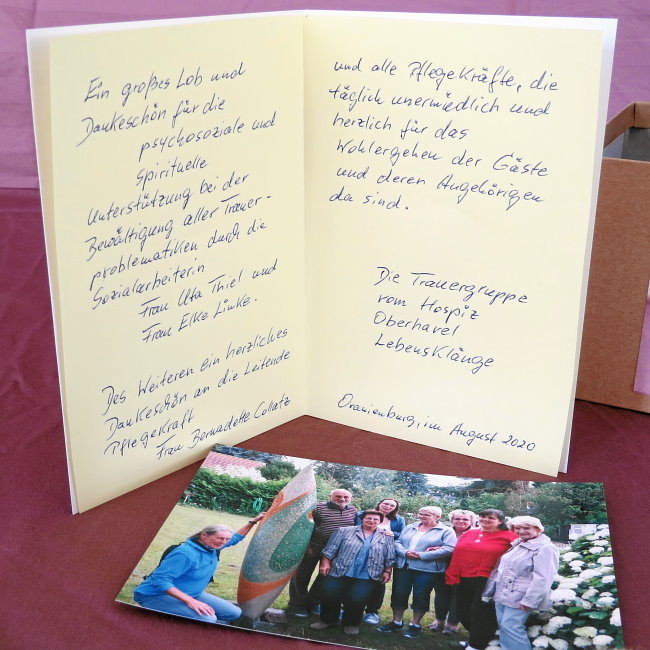 Ein großes Lob und
Dankeschön für die
psychosoziale und
spirituelle
Unterstützung bei der
Bewältigung aller Trauer-
problematiken durch die
Sozialarbeiterin
Frau Uta Thiel und
Frau Elke Linke.
Des Weiteren ein herzliches
Dankeschön an die Leitende
Pflegekraft
Frau Bernadette Collatz
und alle Pflegekräfte, die
täglich unermüdlich und
herzlich für das
Wohlergehen der Gäste
und deren Angehörigen
da sind.
Die Trauergruppe
vom Hospiz
Oberhavel
Lebensklänge
Oranienburg, im August 2020